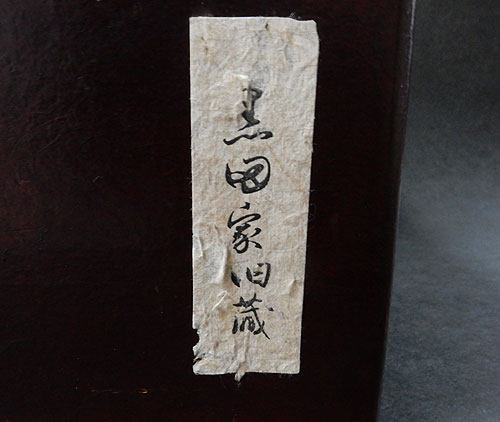 黒田家旧蔵